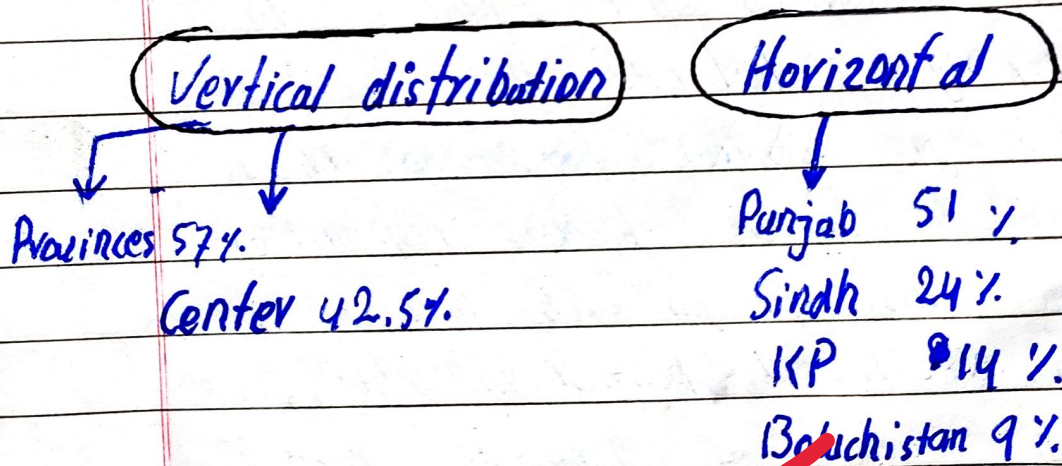 Vertical distribution
Provinces 57%.
Center 42.5%.
Horizontal
Punjab 51 %.
Sindh 24%.
KP 14 %.
Baluchistan 9%.